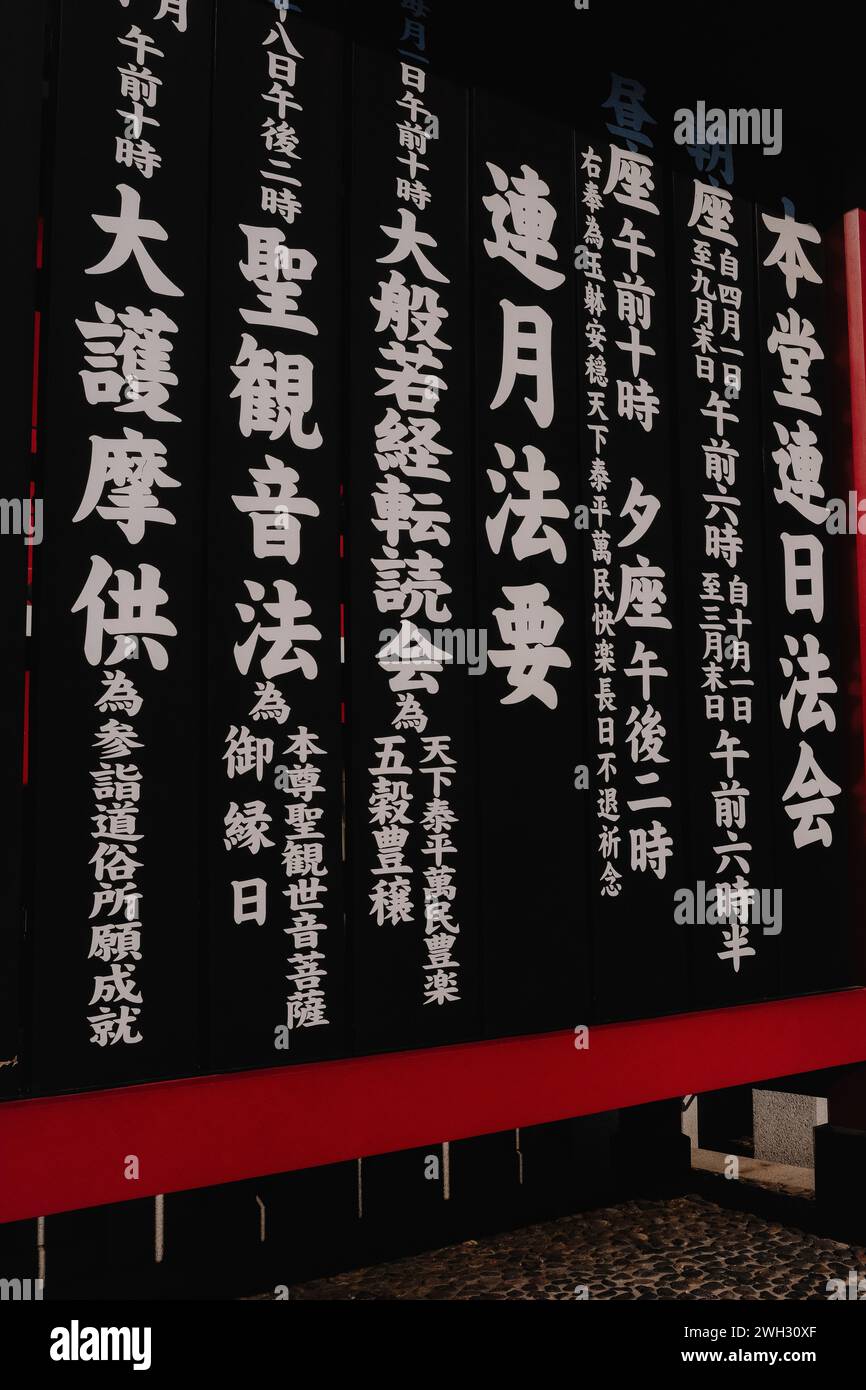 本堂連日法会
朝座 自四月一日至九月末日 午前六時 自十月一日至三月末日 午前六時半
昼座 午前十時 夕座 午後二時
右奉為玉躰安穏天下泰平萬民快楽長日不退祈念
連月法要
毎月一日午前十時 大般若経転読会 為 天下泰平萬民豊楽 五穀豊穣
十八日午後二時 聖観音法 為 本尊聖観世音菩薩 御縁日
月 午前十時 大護摩供 為参詣道俗所願成就
alamy
Image ID: 2WH30XF
www.alamy.com